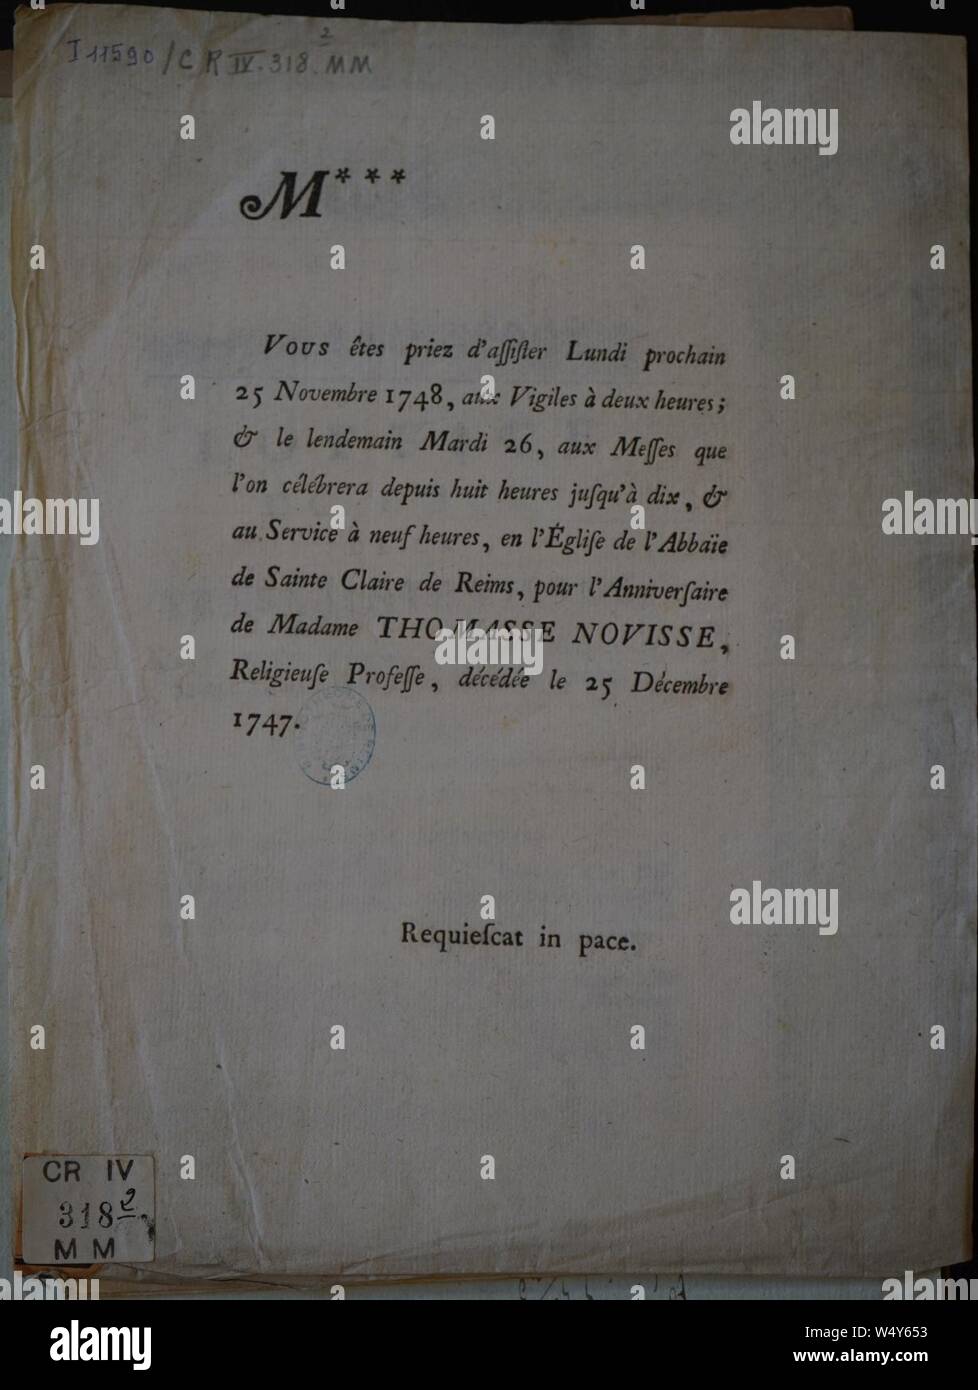 I 11590 / C R IV. 318 2 MM
M***
Vous êtes priez d'aſſiſter Lundi prochain
25 Novembre 1748, aux Vigiles à deux heures;
& le lendemain Mardi 26, aux Meſſes que
l'on célébrera depuis huit heures juſqu'à dix, &
au Service à neuf heures, en l'Égliſe de l'Abbaïe
de Sainte Claire de Reims, pour l'Anniverſaire
de Madame THOMASSE NOVISSE,
Religieuſe Profeſſe, décédée le 25 Décembre
1747.
Requieſcat in pace.
CR IV
318 2
M M
alamy
alamy
Image ID: W4Y653
www.alamy.com